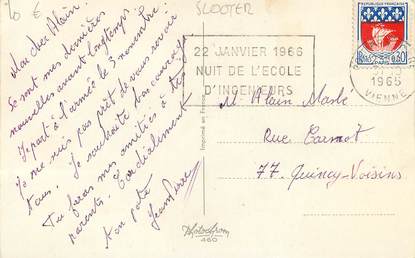 10 €
SLOOTER
Mon cher Alain.
Ce sont mes dernières
nouvelles avant longtemps.
Je part à l'armée le 3 novembre.
Je ne suis pas prêt de vous revoir
tous. Je souhaite bon courage
Tu feras mes amitiés à tes
parents. Cordialement
ton pote
Jean Pierre
22 JANVIER 1966
NUIT DE L'ECOLE
D'INGENIEURS
REPUBLIQUE FRANÇAISE
0,30
1965
VIENNE
M. Alain Masle
Rue Carnot
77. Quincy-Voisins
Imprimé en France
Photochrom
460